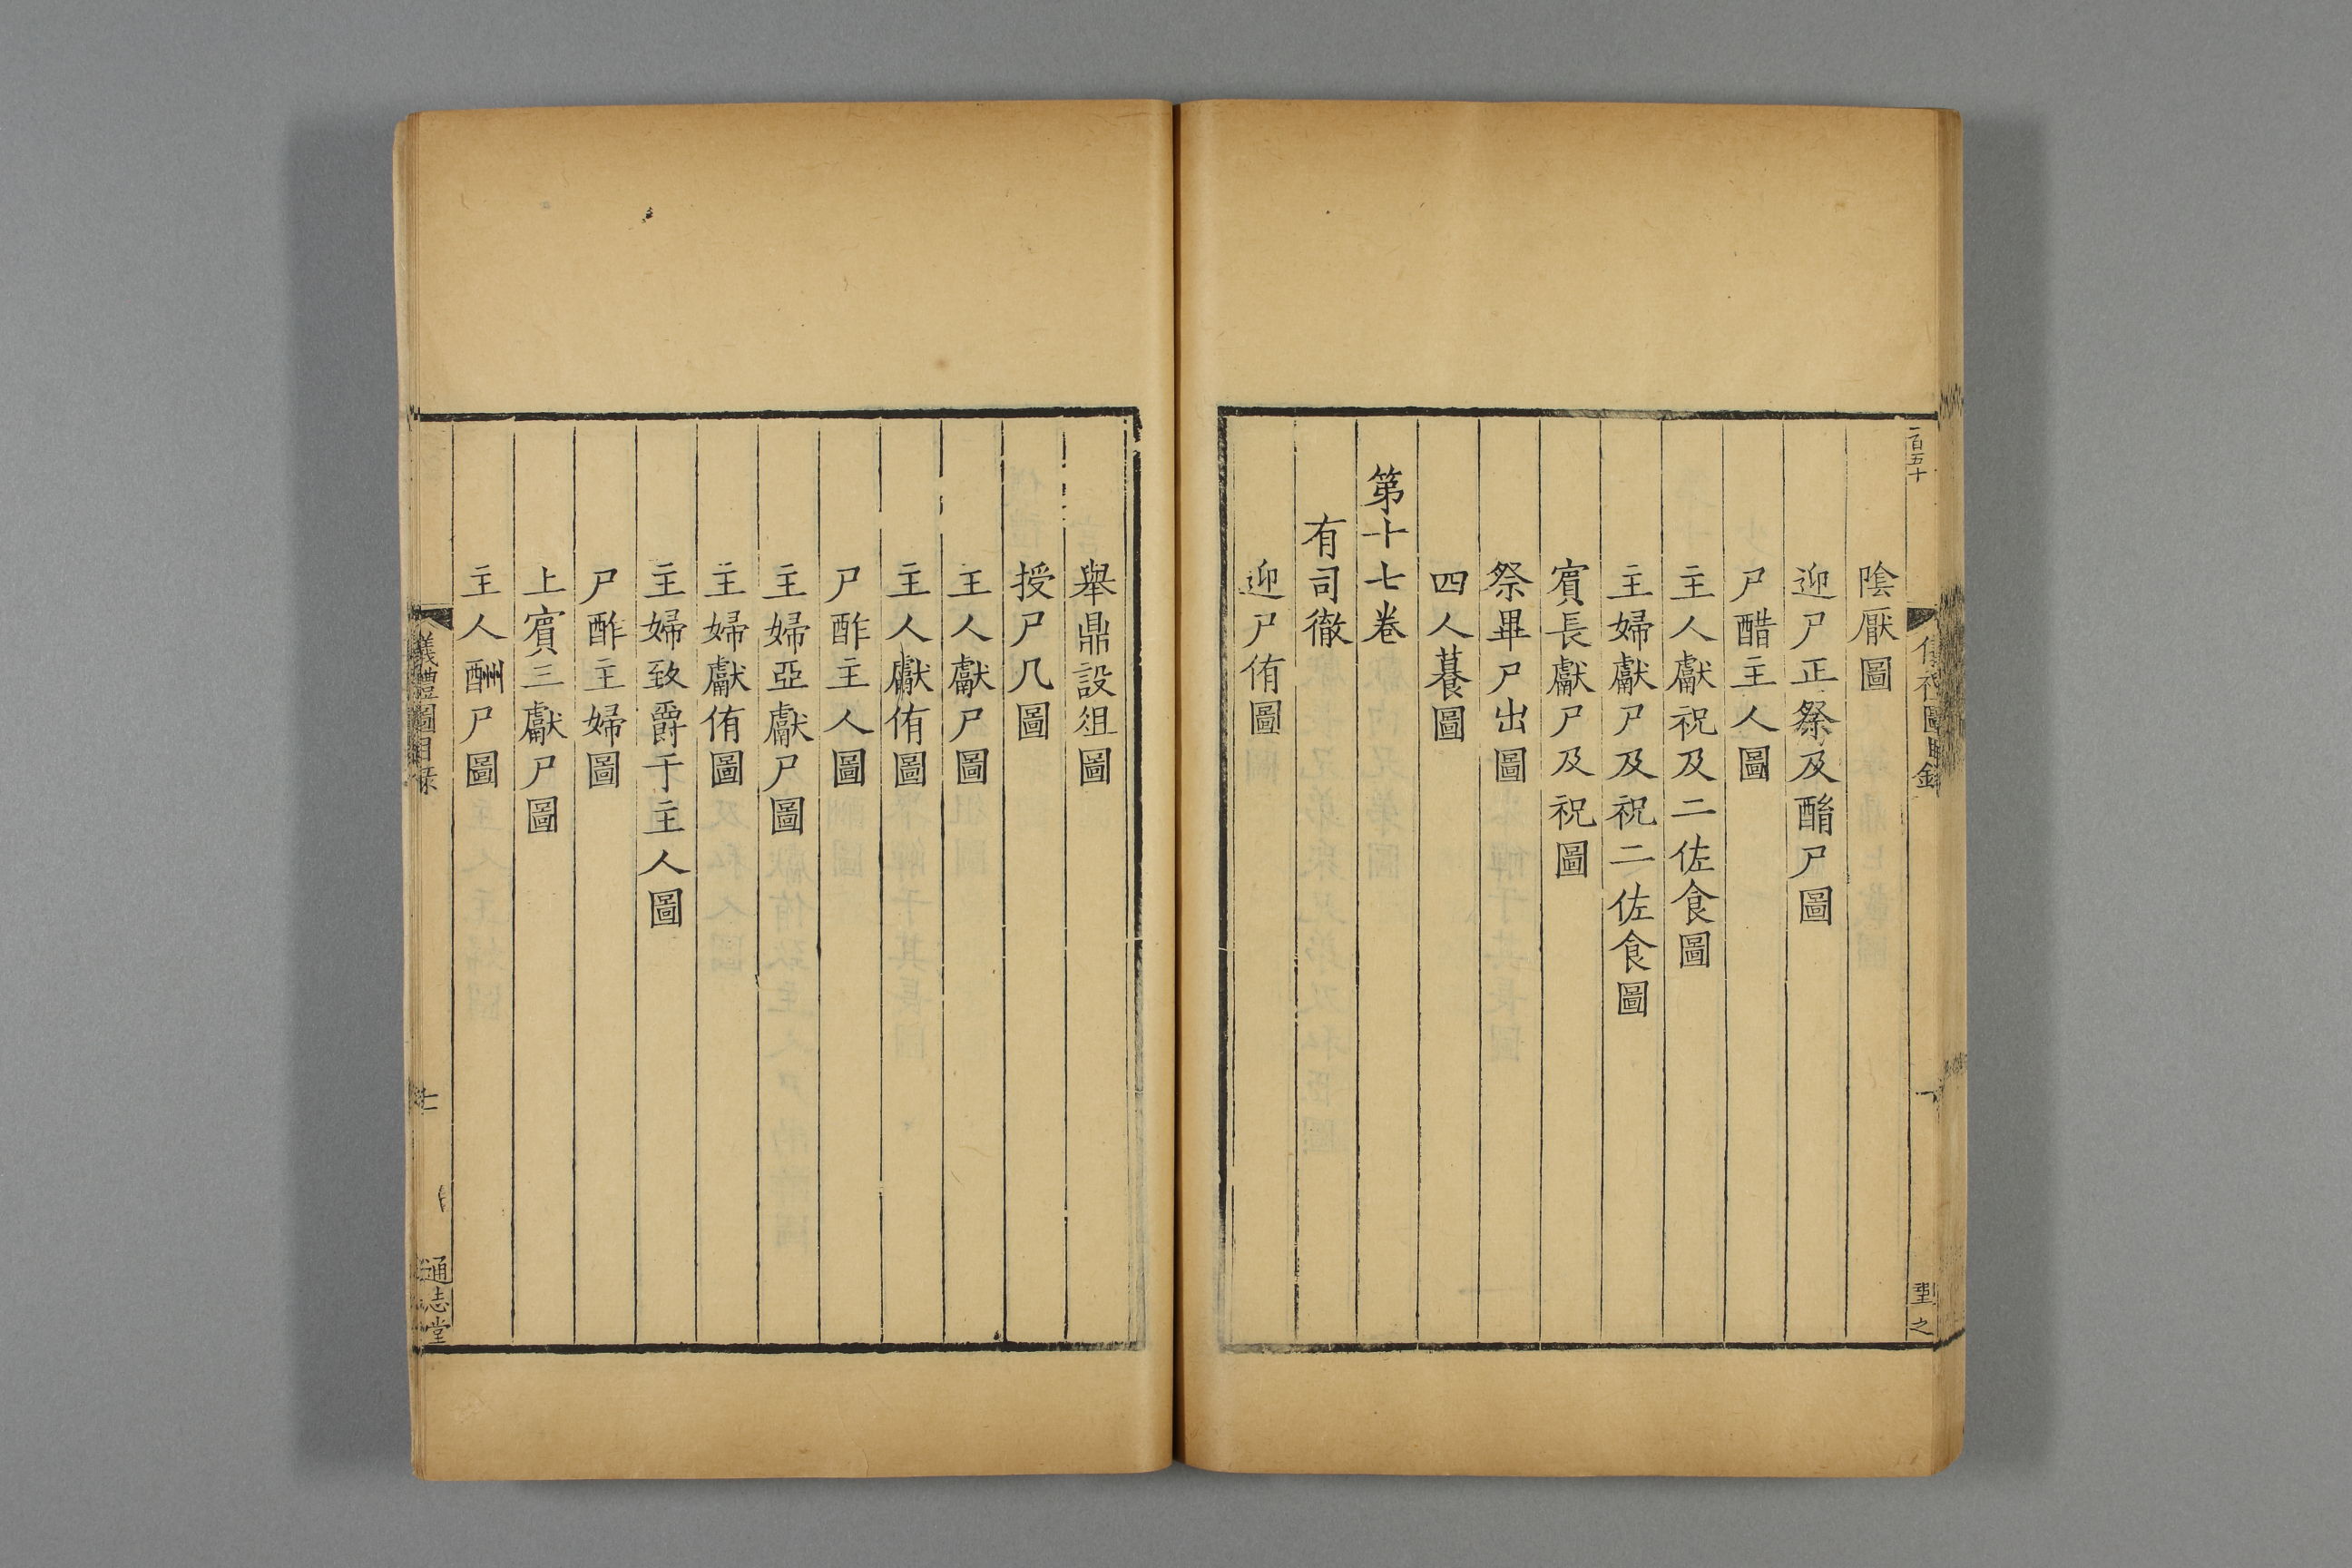 二百五十
陰厭圖
迎尸正祭及酳尸圖
尸醋主人圖
主人獻祝及二佐食圖
主婦獻尸及祝二佐食圖
賔長獻尸及祝圖
祭畢尸出圖
四人養圖
第十七卷
有司徹
迎尸侑圖
舉鼎設俎圖
授尸几圖
主人獻尸圖
主人獻侑圖
尸酢主人圖
主婦亞獻尸圖
主婦獻侑圖
主婦致爵于主人圖
尸酢主婦圖
上賔三獻尸圖
主人酬尸圖
儀禮圖目録
通志堂